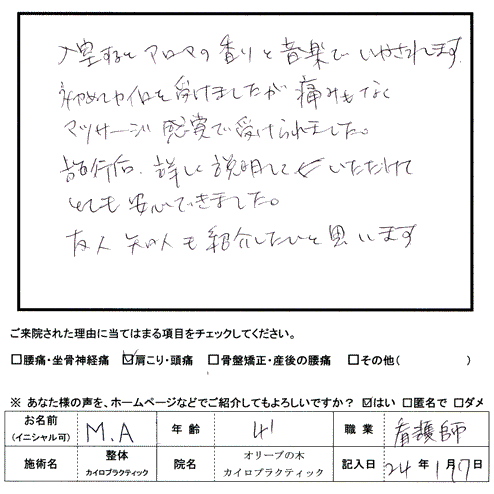 入室するとアロマの香りと音楽でいやされます。
初めてカイロを受けましたが痛みもなく
マッサージ感覚で受けられました。
施行后、詳しく説明して いただけて
とても安心できました。
友人 知人も紹介したいと思います
ご来院された理由に当てはまる項目をチェックしてください。
□腰痛・坐骨神経痛 ☑肩こり・頭痛 □骨盤矯正・産後の腰痛 □その他( )
※ あなた様の声を、ホームページなどでご紹介してもよろしいですか？ ☑はい □匿名で □ダメ
お名前 (イニシャル可) M.A 年齢 41 職業 看護師
施術名 整体 カイロプラクティック 院名 オリーブの木 カイロプラクティック 記入日 24年1月17日